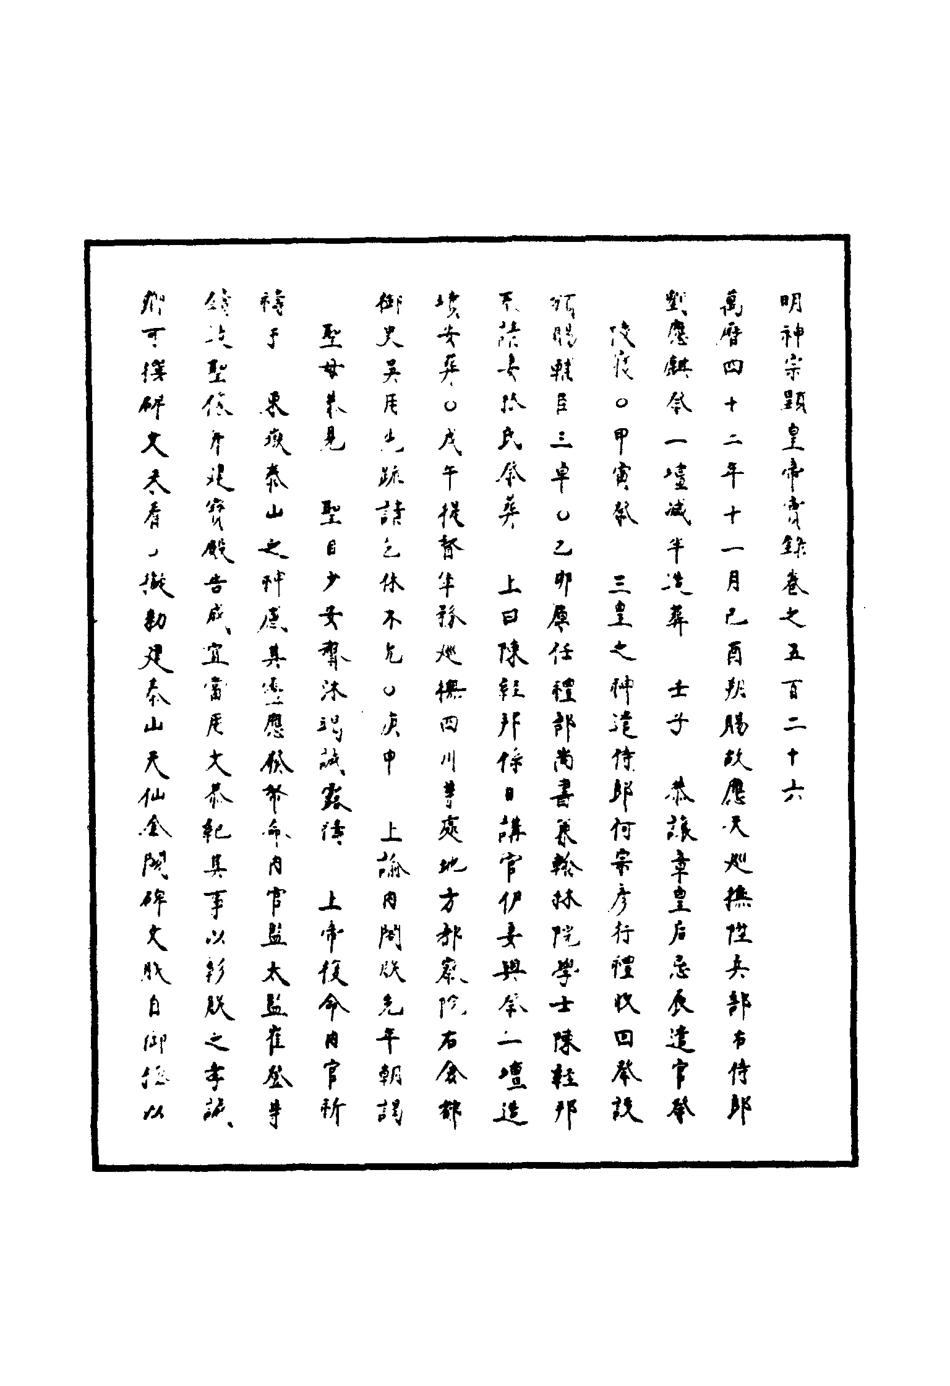 明神宗顯皇帝實錄卷之五百二十六
萬曆四十二年十一月己酉朔賜故應天巡撫陞兵部右侍郎
劉應麒祭一壇減半造葬 壬子 恭讓章皇后忌辰遣官祭
陵寢○甲寅祭 三皇之神遣侍郎何宗彥行禮收回祭設
頒賜輔臣三卓○乙卯原任禮部尚書兼翰林院學士陳經邦
請妻 氏祭葬 上曰陳經邦係日講官伊妻與祭一壇造
墳安葬○戊午提督軍務巡撫四川等處地方都察院右僉都
御史吳用先疏請乞休不允○庚申 上諭內閣朕先年朝謁
聖母恭見 聖目少安齋沐竭誠露禱 上帝復命內官祈
禱于 東嶽泰山之神感其靈應發帑命內官監太監崔登等
鑄 聖像 建寶殿告成宜當用文恭紀其事以彰朕之孝誠
卿可撰碑文來看 擬勅建泰山天仙金闕碑文朕自御 以